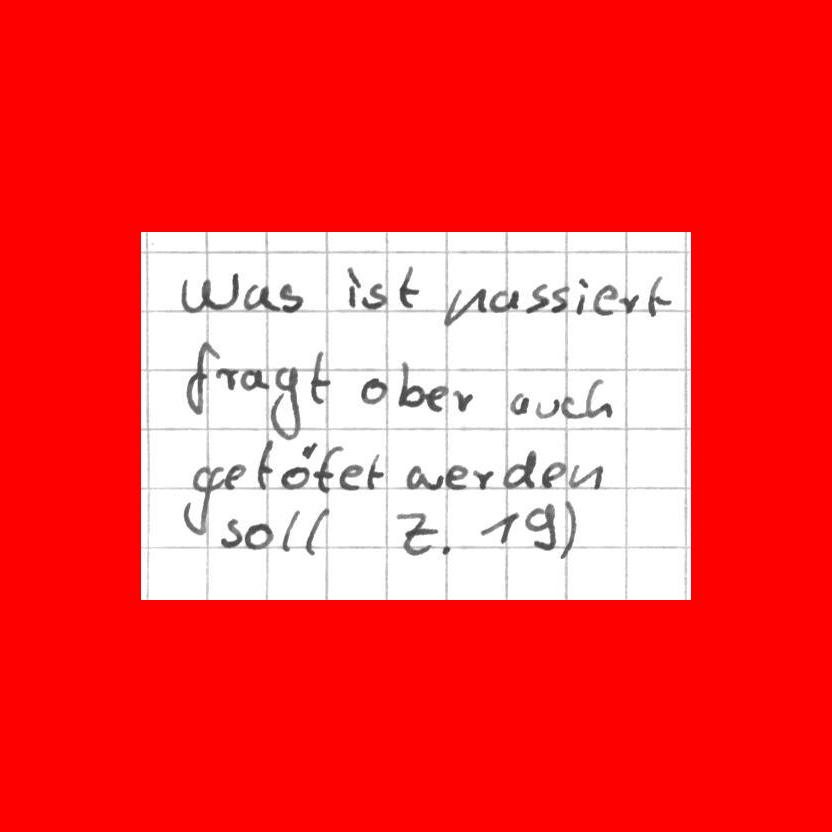 Was ist passiert
fragt ober auch
getötet werden
soll Z. 19)